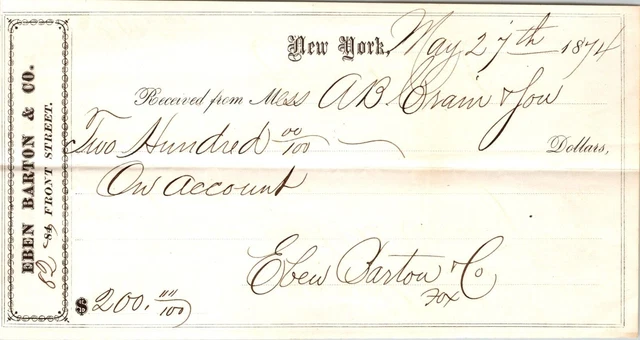 EBEN BARTON & CO.
82 84 FRONT STREET.
New York, May 27th 1874
Received from Mess AB Crain & Son
Two Hundred 00/100 Dollars,
On account
Eben Barton & Co
Fox
$200. 00/100